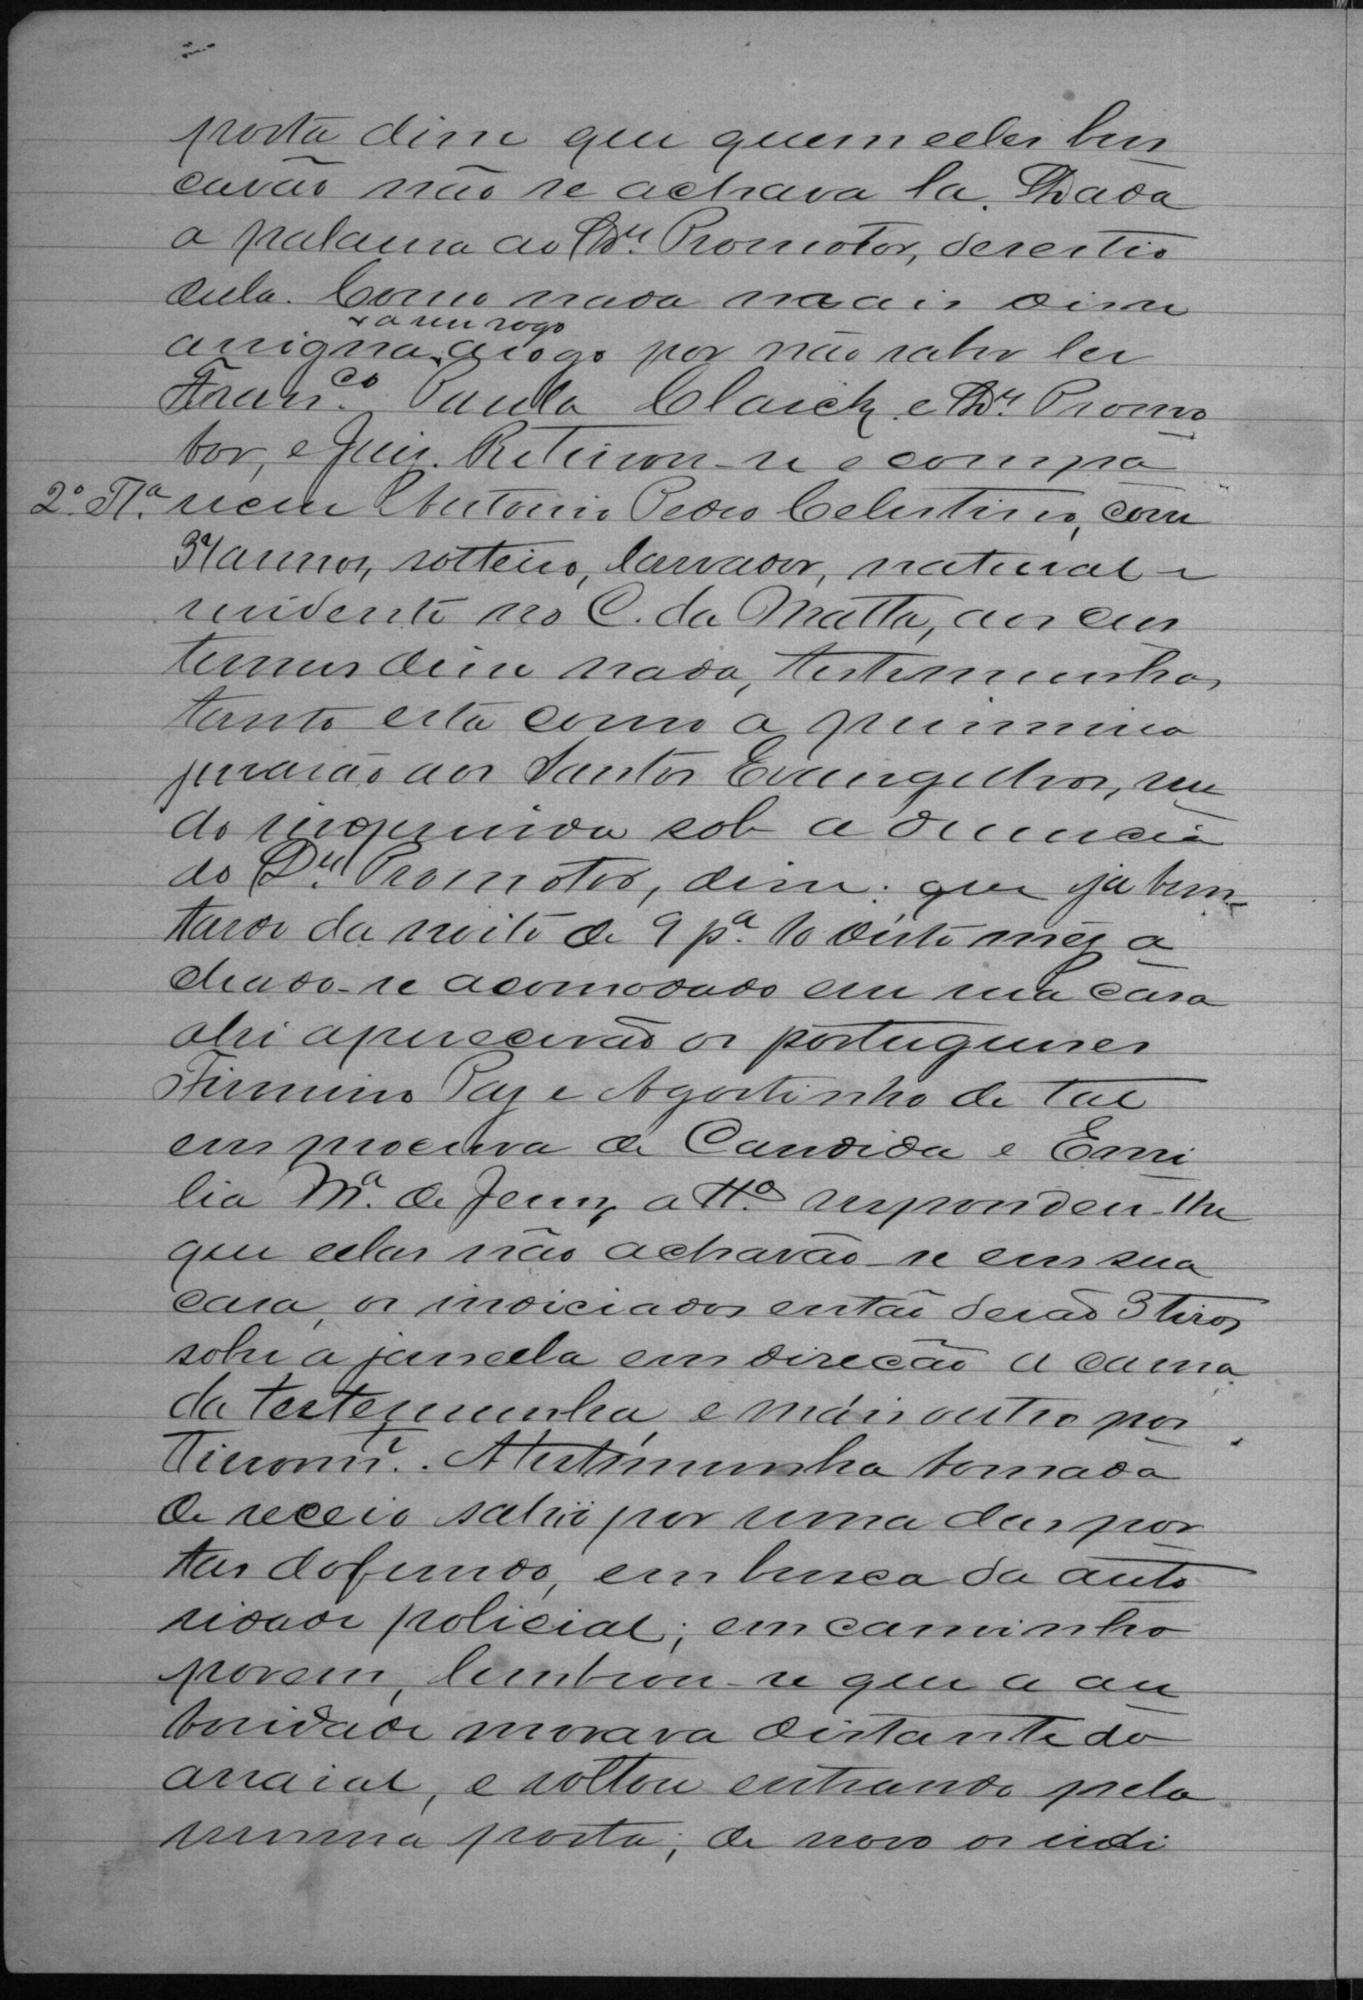 porta disse que quem elles bus
cavão não se achava la. Dada
a palavra ao Dr. Promotor, desestio
della. Como nada mais disse
assigna a rogo por não saber ler
a seu rogo
Franco. Paula Claick e Dr. Promo
tor, e Juis. Retirou-se e compa
2ª Tª. receu Antonio Pedro Celestino, com
34 annos, solteiro, lavrador, natural e
residente no C. da Matta, aos cus
tumes disse nada, testemunhas
tanto esta como a primeira
jurarão aos Santos Evangelhos, sen
do inquirida sob a denuncia
do Dr. Promotor, disse: que ja bem
tarde da noite de 9 pª. 10 deste mêz a
chado-se acomodado em sua casa
ahi aparecerão os portugueses
Firmino Paz e Agostinho de tal
em procura de Candida e Emi
lia Mª. de Jesuz, a Ttª respondeu-lhe
que ellas não achavão-se em sua
casa, os indiciados então derão 3 tiros
sobre a janella em direcão a cama
da testemunha, e máis outro por
A testemunha tomada
de receio sahio por uma das por
tas do fundo, em busca da auto
ridade policial; em caminho
porem, lembrou-se que a au
toridade morava distante do
arraial, e voltou entrando pela
mesma porta; de novo os indi